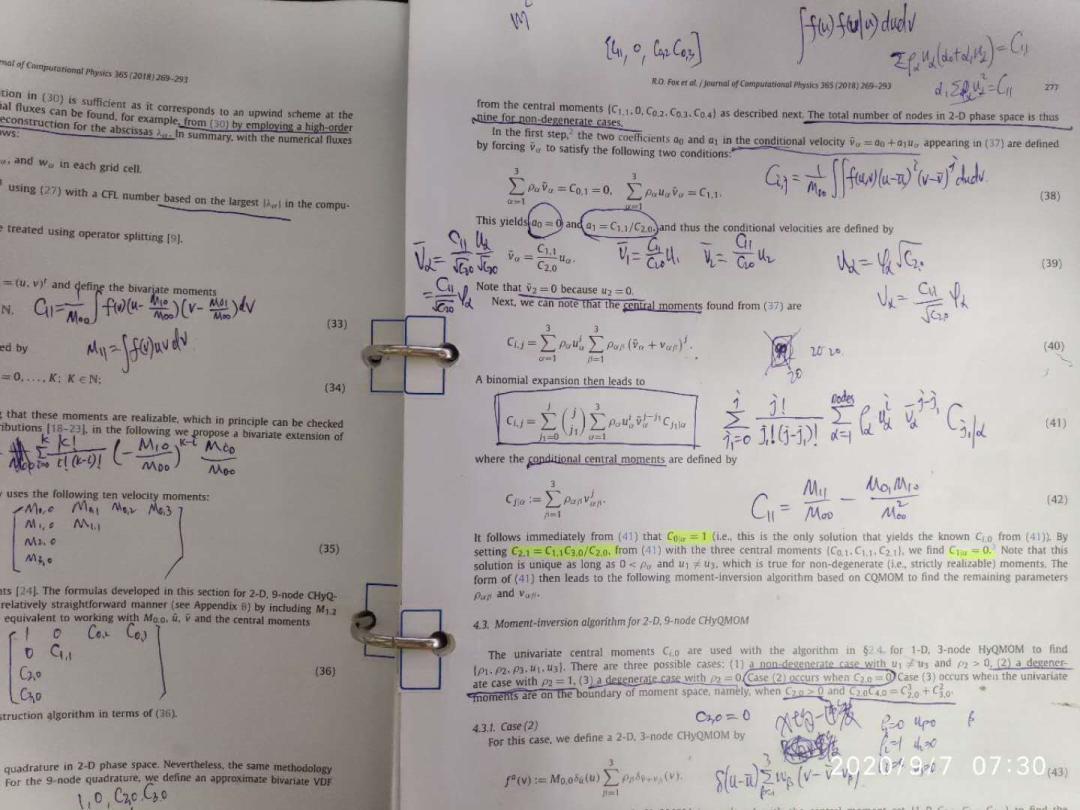 nal of Computational Physics 365 (2018) 269–293
tion in (30) is sufficient as it corresponds to an upwind scheme at the
ial fluxes can be found, for example, from (30) by employing a high-order
econstruction for the abscissas λα. In summary, with the numerical fluxes
ows:
α, and wα in each grid cell.
using (27) with a CFL number based on the largest |λα| in the compu-
e treated using operator splitting [9].
= (u, v)ᵗ and define the bivariate moments
N.
C11 = 1/M00 ∫ f(v)(u - M10/M00)(v - M01/M00) dv
(33)
ed by
M11 = ∫ f(v) uv dv
= 0, ..., K; K ∈ N;
(34)
g that these moments are realizable, which in principle can be checked
ributions [18–23], in the following we propose a bivariate extension of
uses the following ten velocity moments:
M0,0 M0,1 M0,2 M0,3
M1,0 M1,1
M2,0
M3,0
(35)
nts [24]. The formulas developed in this section for 2-D, 9-node CHyQ-
relatively straightforward manner (see Appendix B) by including M1,2
equivalent to working with M0,0, ū, v̄ and the central moments
1 0 C0,2 C0,3
0 C1,1
C2,0
C3,0
(36)
struction algorithm in terms of (36).
quadrature in 2-D phase space. Nevertheless, the same methodology
For the 9-node quadrature, we define an approximate bivariate VDF
1, 0, C2,0 C3,0
{C11, 0, C0,2 C0,3}
R.O. Fox et al. / Journal of Computational Physics 365 (2018) 269–293
277
from the central moments {C1,1, 0, C0,2, C0,3, C0,4} as described next. The total number of nodes in 2-D phase space is thus
nine for non-degenerate cases.
In the first step,² the two coefficients a0 and a1 in the conditional velocity v̄α = a0 + a1uα appearing in (37) are defined
by forcing v̄α to satisfy the following two conditions:
∑³α=1 ραv̄α = C0,1 = 0, ∑³α=1 ραuαv̄α = C1,1.
Ci,j = 1/M00 ∬ f(u,v)(u-ū)ⁱ(v-v̄)ʲ dudv
(38)
This yields a0 = 0 and a1 = C1,1/C2,0, and thus the conditional velocities are defined by
v̄α = C1,1/C2,0 uα.
V̄1 = C11/C20 u1 V̄2 = C11/C20 u2
(39)
Note that v̄2 = 0 because u2 = 0.
Next, we can note that the central moments found from (37) are
Ci,j = ∑³α=1 ραuαⁱ ∑³β=1 ραβ (v̄α + vαβ)ʲ.
20 20
20
(40)
A binomial expansion then leads to
Ci,j = ∑ʲj1=0 (j j1) ∑³α=1 ραuαⁱ v̄αʲ⁻ʲ¹ Cj1|α
(41)
where the conditional central moments are defined by
Cj|α := ∑³β=1 ραβvʲαβ.
C11 = M11/M00 - M01M10/M²00
(42)
It follows immediately from (41) that C0|α = 1 (i.e., this is the only solution that yields the known Ci,0 from (41)). By
setting C2,1 = C1,1C3,0/C2,0, from (41) with the three central moments (C0,1, C1,1, C2,1), we find C1|α = 0.³ Note that this
solution is unique as long as 0 < ρα and u1 ≠ u3, which is true for non-degenerate (i.e., strictly realizable) moments. The
form of (41) then leads to the following moment-inversion algorithm based on CQMOM to find the remaining parameters
ραβ and vαβ.
4.3. Moment-inversion algorithm for 2-D, 9-node CHyQMOM
The univariate central moments Ci,0 are used with the algorithm in §2.4, for 1-D, 3-node HyQMOM to find
{ρ1, ρ2, ρ3, u1, u3}. There are three possible cases: (1) a non-degenerate case with u1 ≠ u3 and ρ2 > 0, (2) a degener-
ate case with ρ2 = 1, (3) a degenerate case with ρ2 = 0. Case (2) occurs when C2,0 = 0. Case (3) occurs when the univariate
moments are on the boundary of moment space, namely, when C2,0 > 0 and C2,0C4,0 = C³2,0 + C²3,0.
4.3.1. Case (2)
C2,0 = 0
For this case, we define a 2-D, 3-node CHyQMOM by
fᵃ(v) := M0,0δū(u) ∑³β=1 ρβδv̄+vβ(v).
(43)
2020/9/7 07:30